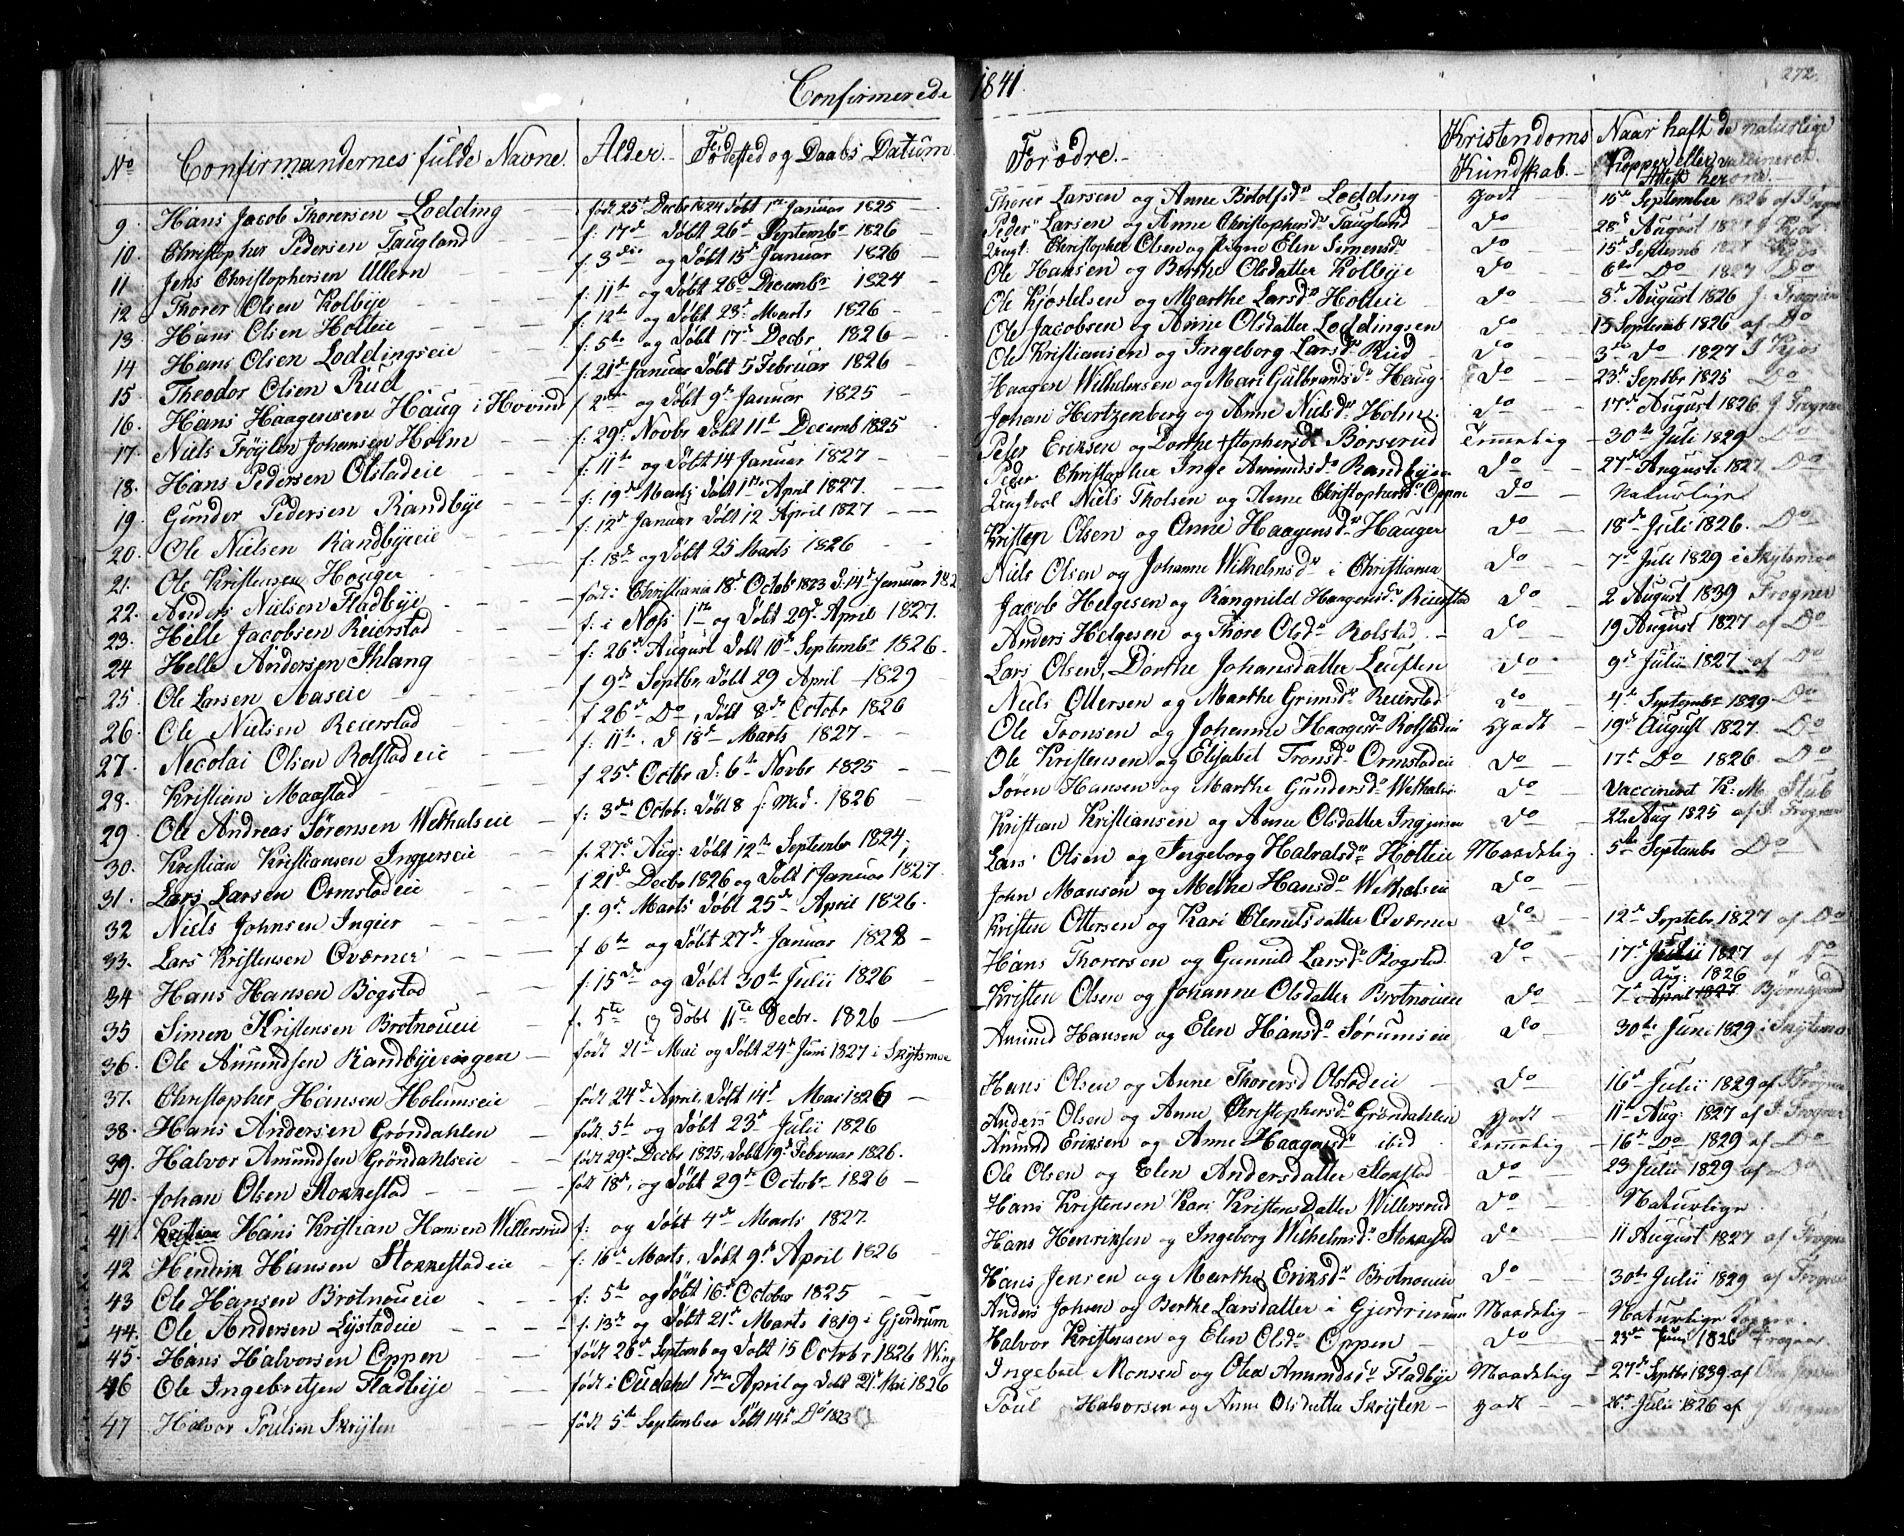 Confirmerede 1841.
272.
No Confirmandernes fulde Navne. Alder. Fødested og Daabs Datum. Forældre. Kristendoms Kundskab. Naar haft de naturlige Kopper eller vaccineret
9. Hans Jacob Thorersen Lodding født 25d Decbr 1824 døbt 1ste Januar 1825 Thorer Larsen og Anne Botolfsdr Lodding godt 15d September 1826 af Frogner
10 Christopher Pedersen Taugland f: 17d døbt 26d Septembr 1826 Peder Larsen og Anne Christophersdr Taugland do 28d August
11 Jens Christophersen Ullern f. 3die og døbt 15d Januar 1826 Christopher Olsen og Elen Simensdr do 15d Septemb
12 Thorer Olsen Kolbye f: 11te og døbt 26d Decembr 1824 Ole Hansen og Berthe Olsdatter Kolbye do 6te Do 1827 Do
13. Hans Olsen Holteie f: 12te og døbt 23d Marts 1826 Ole Kjostelsen og Marthe Larsdr Holteie do 8d August 1826 J. Frogner
14 Hans Olsen Loddingseie f: 5te og døbt 17d Decbr 1826 Ole Jacobsen og Anne Olsdatter Loddingseie do 15 Septemb 1826 af Do
15. Theodor Olsen Rud f: 21d Januar døbt 5 Februar 1826 Ole Kristiansen og Ingeborg Larsdr Rud do 3die do 1827 J Kjos
16. Hans Haagensen Haug i Hovind f 2den og døbt 9d Januar 1825 Haagen Wilhelmsen og Mari Gulbransdr Haug do 23d Septbr 1825 Do
17. Niels Johansen Holm f: 29d Novbr døbt 11te Decemb 1825 Johan Hertzenberg og Anne Nielsdr Holm do 17d August 1826 J Frogner
18. Hans Pedersen Olstadeie f: 11te og døbt 14 Januar 1827 Peter Eriksen og Dorthe Xstophersdr Borserud Temmelig 30te Juli 1829 Do
19. Gunder Pedersen Randbye f: 19d Marts døbt 1ste April 1827 Peder Christopher Inge Amundsdr Randbye do 27d August 1827 Do
20. Ole Nielsen Randbyeie f: 12d Januar døbt 12 April 1827 Niels Tholsen og Anne Christophersdr Oppen do Naturlige
21. Ole Kristensen Houger f: 18d og døbt 25 Marts 1826 Kristen Olsen og Anne Haagensdr Hauger do 18d Juli 1826. Do
22. Anders Nielsen Fladbye født i Christiania 18d Octobr 1823 d: 14d Januar 182 Niels Olsen og Johanne Wilhelmsdr i Christiania do 7d Juli 1829 i Skytsmoe
23. Helle Jacobsen Reierstad f: i Næs 1ste og døbt 29d April 1827. Jacob Helgesen og Rangnild Haagensdr Reierstad do 2 August 1839 Frogner
24 Helle Andersen Ihlang f: 26d August døbt 10d Septembr 1826. Anders Helgesen og Thore Olsdr Rolstad do 19 August 1827 af Do
25 Ole Larsen Aaseie f 9d Septbr døbt 29 April 1829 Lars Olsen, Dorthe Johansdatter Leuften do 9d Julii 1827 af Do
26. Ole Nielsen Reierstad f 26d Do, døbt 8d Octobr 1826 Niels Ottersen og Marthe Grimsdr Reierstad do 4d Septembr 1829 Do
27. Necolai Olsen Rolstadeie f: 11te d 18d Marts 1827 Ole Tronsen og Johanne Haagesdr Rolstadeie godt 19d August 1827. Do
28. Kristian Maastad f 25d Octbr d: 6te Novbr 1825 Ole Kristensen og Elisabet Tronsdr Ormstadeie do 17d Do 1826 Do
29 Ole Andreas Sørensen Wethalseie f: 3die Octob: døbt 8 s: Md. 1826 Søren Hansen og Marthe Gundersdr Wethalseie do Vaccineret K: M. Stub
30. Kristian Kristiansen Ingierseie f. 27d Aug: døbt 12te Septembr 1824, Kristian Kristiansen og Anne Olsdatter do 22 Aug 1825 af J. Frogner
31. Lars Larsen Ormstadeie f 21de Decbr 1826 og døbt 1 Januar 1827. Lars Olsen og Ingeborg Halvalsdr Holteie Maadelig 5te Septembr Do
32 Niels Johnsen Ingier f. 9d Marts døbt 25d April 1826. John Monsen og Methe Hansdr Wethalseie do
33. Lars Kristensen Oværner f 6te og døbt 27d Januar 1828 Kristen Ottersen og Kari Clemetsdatter Oværner do 12d Septbr 1827 af Do
34 Hans Hansen Bogstad f: 15d og døbt 30te Julii 1826 Hans Thorersen og Gunnild Larsdr Bogstad do 17d Julii 1827 af Do
35 Simen Kristensen Brotnoueie f. 5te og døbt 11te Decbr. 1826 Kristen Olsen og Johanne Olsdatter Brotnoueie do 7d Aug: 1826 April 1827 Bjørnegaard
36. Ole Amundsen Randbyeeiegen født 21d Mai og døbt 24d Juni 1827 i Skytsmoe Amund Hansen og Elen Hansdr Sørumseie do 30te Juni 1829 i Skytsmoe
37. Christopher Hansen Holumseie født 24d April, døbt 14d Mai 1826 Hans Olsen og Anne Thorersd Olstadeie do 16d Julii 1829 af Frogner
38. Hans Andersen Grøndahlen født 5te og døbt 23d Julii 1826 Anders Olsen og Anne Christophersdr Grøndahlen godt 11te Aug: 1827 af J. Frogner
39. Halvor Amundsen Grøndahlseie født 29d Decbr 1825, døbt 19d Februar 1826. Amund Eriksen og Anne Haagensdr ibid Temmelig 16d Do 1829 af Do
40. Johan Olsen Stokkestad født 18d, og døbt 29d Octobr 1826 Ole Olsen og Elen Andersdatter Stokstad do 23 Julii 1829 af Do
41. Kristian Hans Kristian Hansen Willersrud f: og døbt 4d Marts 1827. Hans Kristensen Kari Kristens Datter Willersrud do Naturlige
42 Hendrik Hansen Stokkestadeie f: 16d Marts, døbt 9d April 1826 Hans Henriksen og Ingeborg Wilhelmsdr Stokkestad do 11 August 1827 af Frogner
43 Ole Hansen Brotnoueie f: 5te og døbt 16d October 1825 Hans Jensen og Marthe Eriksdr Brotnoueie do 30te Julii 1829 af Frogner
44. Ole Andersen Lystadeie f: 13d og døbt 21d Marts 1819 i Gjerdrum Anders Johsen og Berthe Larsdatter i Gjerdrum Maadelig Naturlige Kopper
45. Hans Halvorsen Oppen født 26d Septemb og døbt 15 Octobr 1826 Halvor Kristensen og Elen Olsdr Oppen do 23d Juni 1826 Frogner
46 Ole Ingebretsen Fladbye født i Oudahl 1ste April og døbt 21d Mai 1826 Monsen og Olea Amundsdr Fladbye Maadelig 27d Septbr 1839 af
47 Halvor Poulsen Skrøten født 5te September døbt 14d Do 1823 Poul Halvorsen og Anne Olsdatter Skrøten godt 26d Julii 1826 af J Frogner